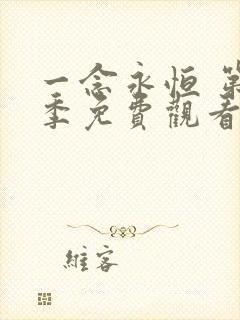 一念永恒 第
季免費觀看
維客